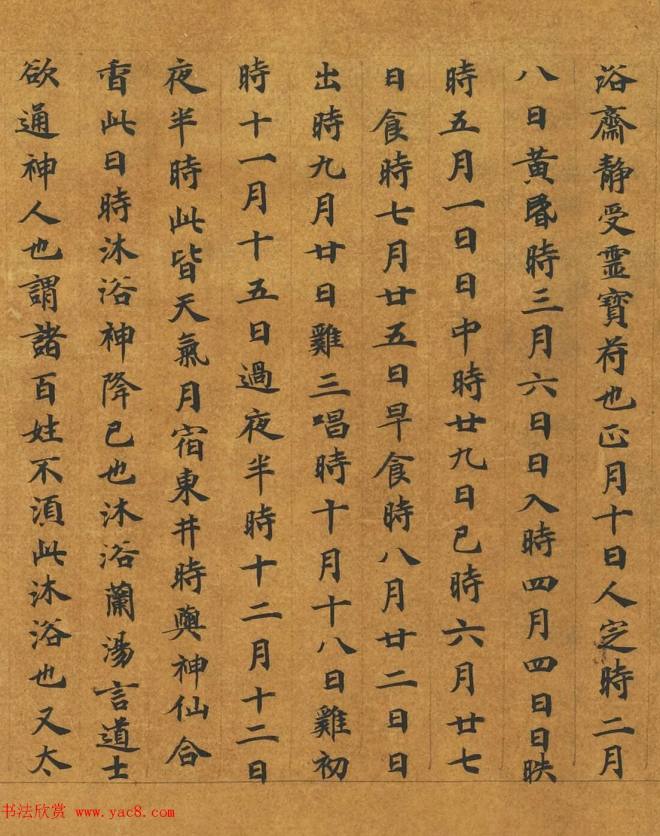 浴齋静受靈寶符也正月十日人定時二月
八日黄昬時三月六日日入時四月四日日昳
時五月一日日中時廿九日巳時六月廿七
日食時七月廿五日早食時八月廿二日日
出時九月廿日雞三唱時十月十八日雞初
時十一月十五日過夜半時十二月十二日
夜半時此皆天氣月宿東井時與神仙合
會此日時沐浴神降己也沐浴蘭湯言道士
欲通神人也謂諸百姓不湏此沐浴也又太
书法欣赏 www.yac8.com